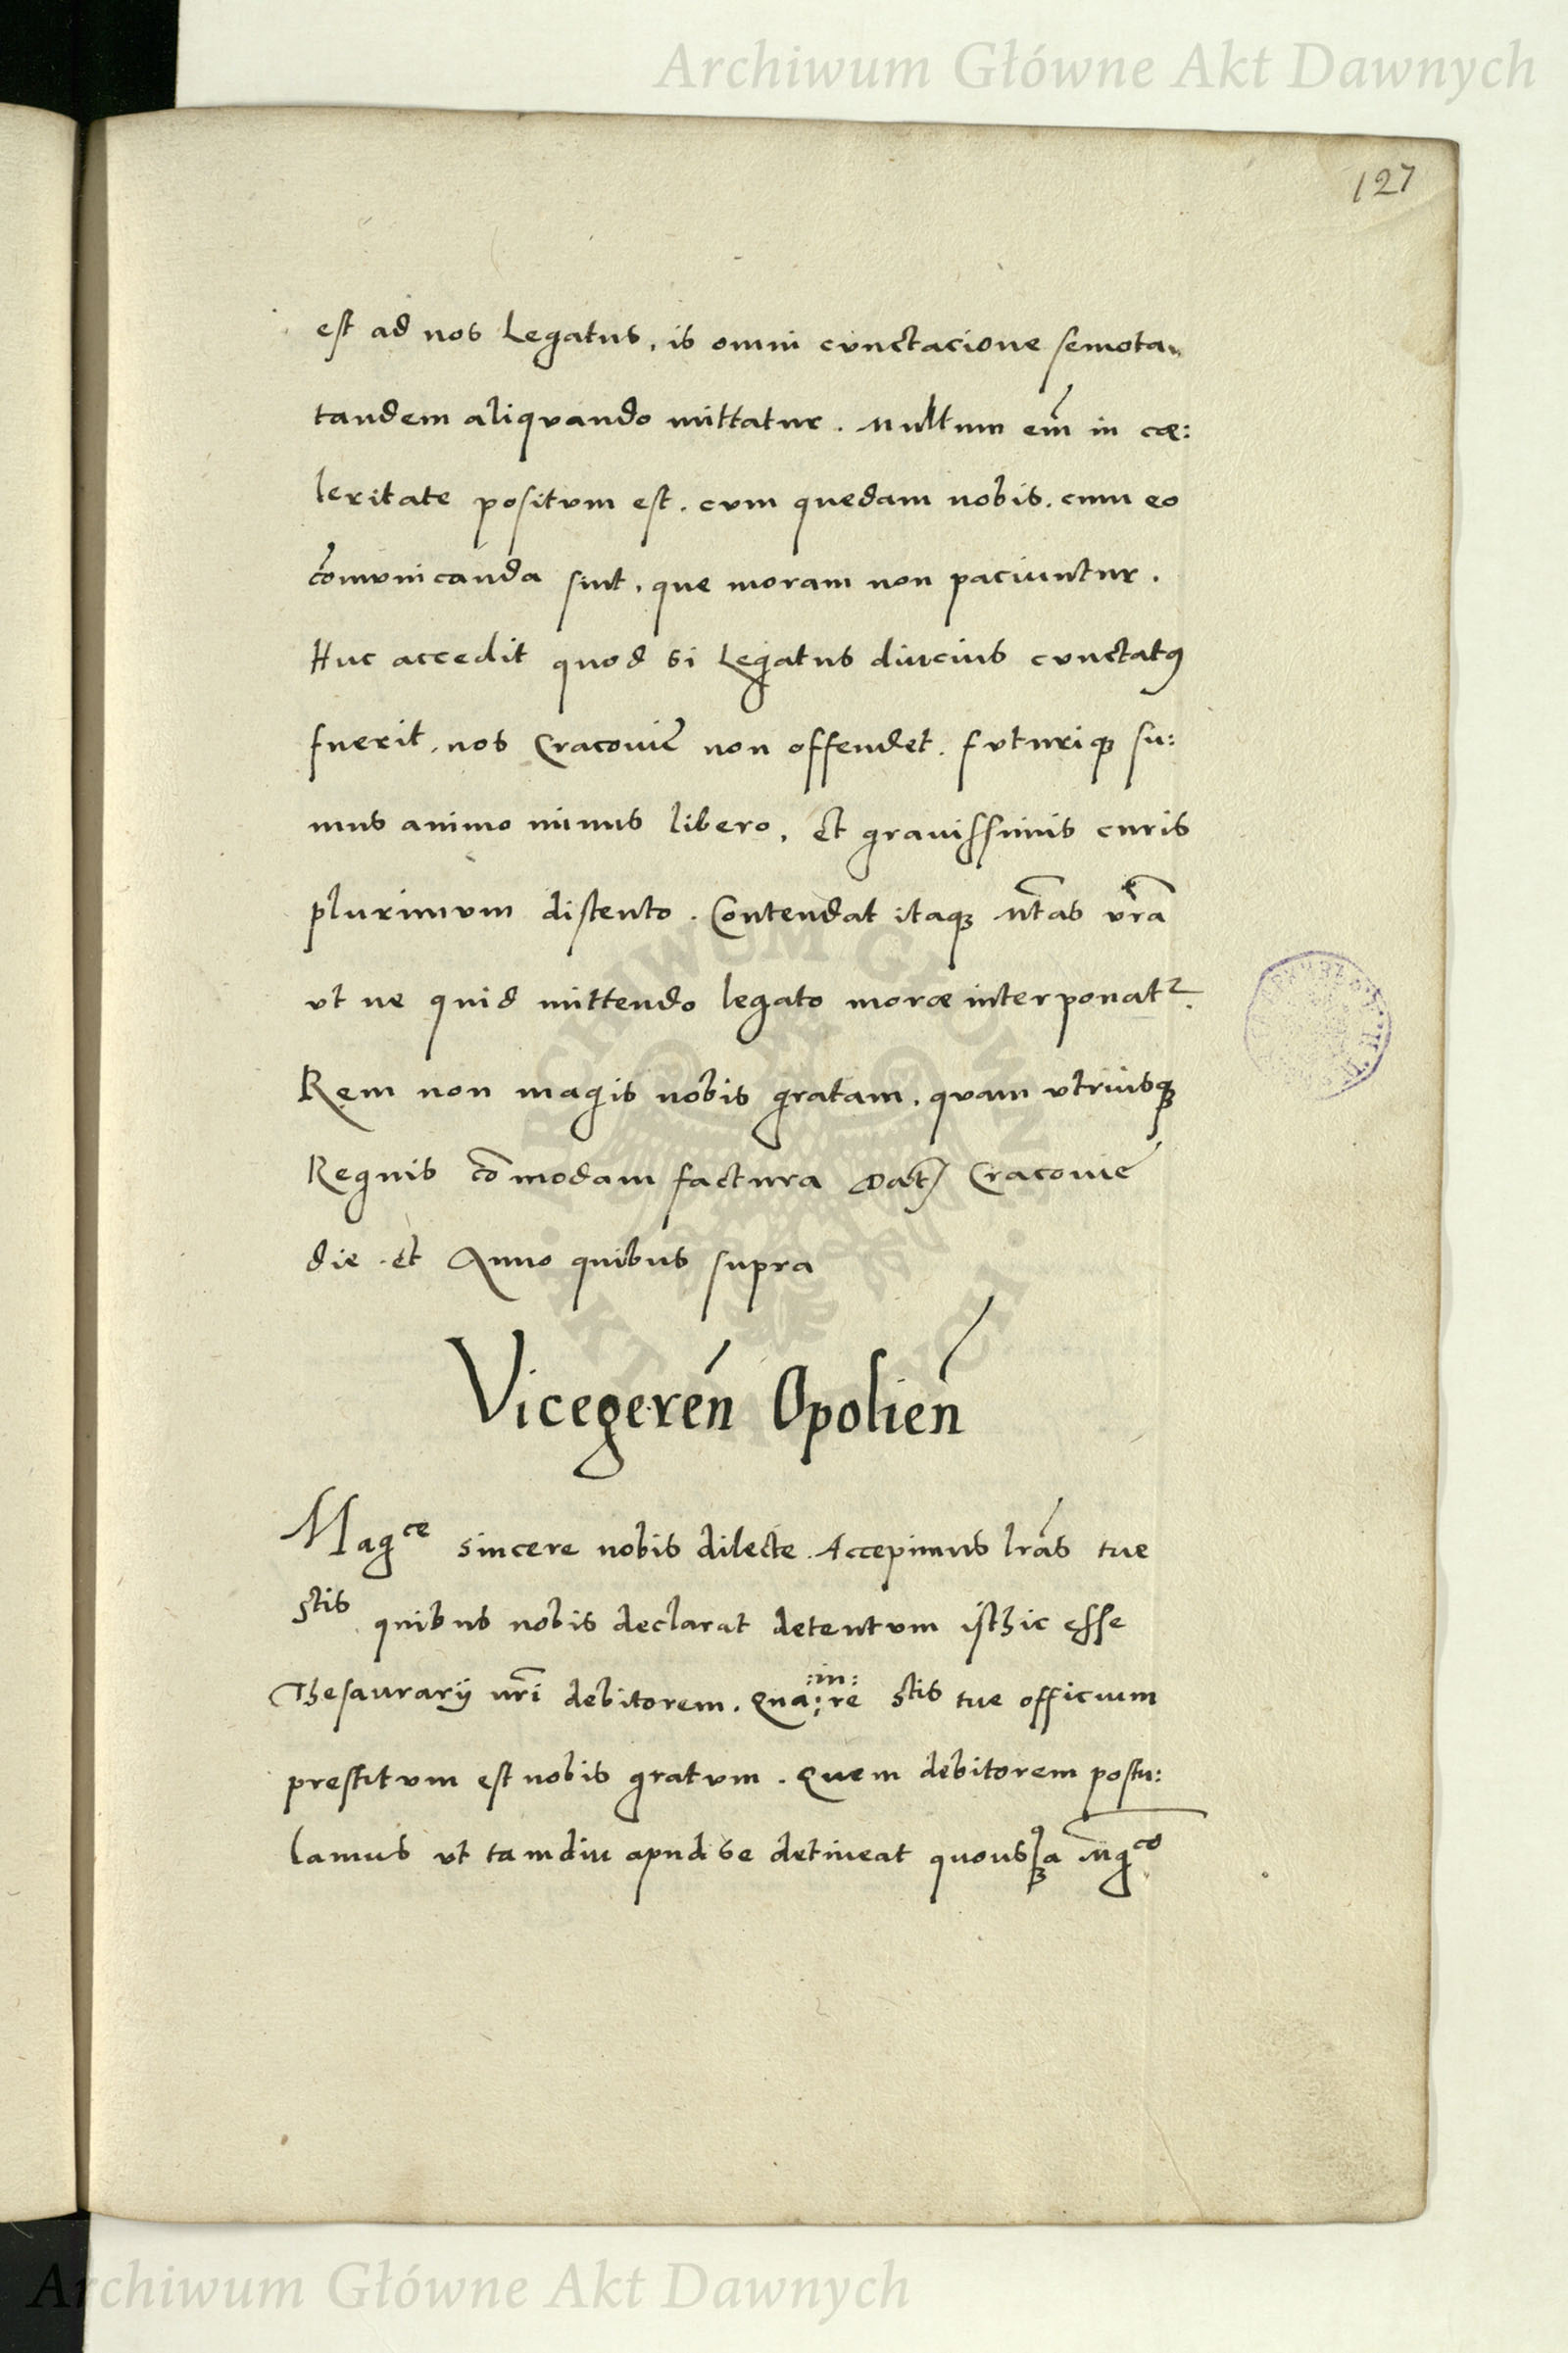 Archiwum Główne Akt Dawnych
127
est ad nos Legatus, is omni cunctacione semota
tandem aliquando mittatur. Multum em̃ in cæ:
leritate positvm est. cvm quedam nobis. cum eo
cõmvnicanda sint, que moram non paciuntur.
Huc accedit quod si Legatus diucius cvnctatꝯ
fuerit, nos Cracouiẽ non offendet. fvturiqꝫ su:
mus animo minus libero, et grauissimis curis
plurimvm distento. Contendat itaqꝫ Mt̃as vr̃a
vt ne quid mittendo legato moræ interponat᷑.
Rem non magis nobis gratam, qvam vtriusqꝫ
Regnis cõmodam factura Dat̃ Cracouie
die et Anno quibus supra
Vicegereñ Opolieñ
Magᶜᵉ sincere nobis dilecte. Accepimus lr̃as tue
Stis quibus nobis declarat detentvm isthic esse
Thesaurarij nr̃i debitorem. Qua:re :in: Stis tue officium
prestitvm est nobis gratvm. Quem debitorem postu:
lamus vt tamdiu apud se detineat quousqꝫ a Mg̃ᶜᵒ
ARCHIWUM GŁÓWNE · AKT DAWNYCH ·
Archiwum Główne Akt Dawnych